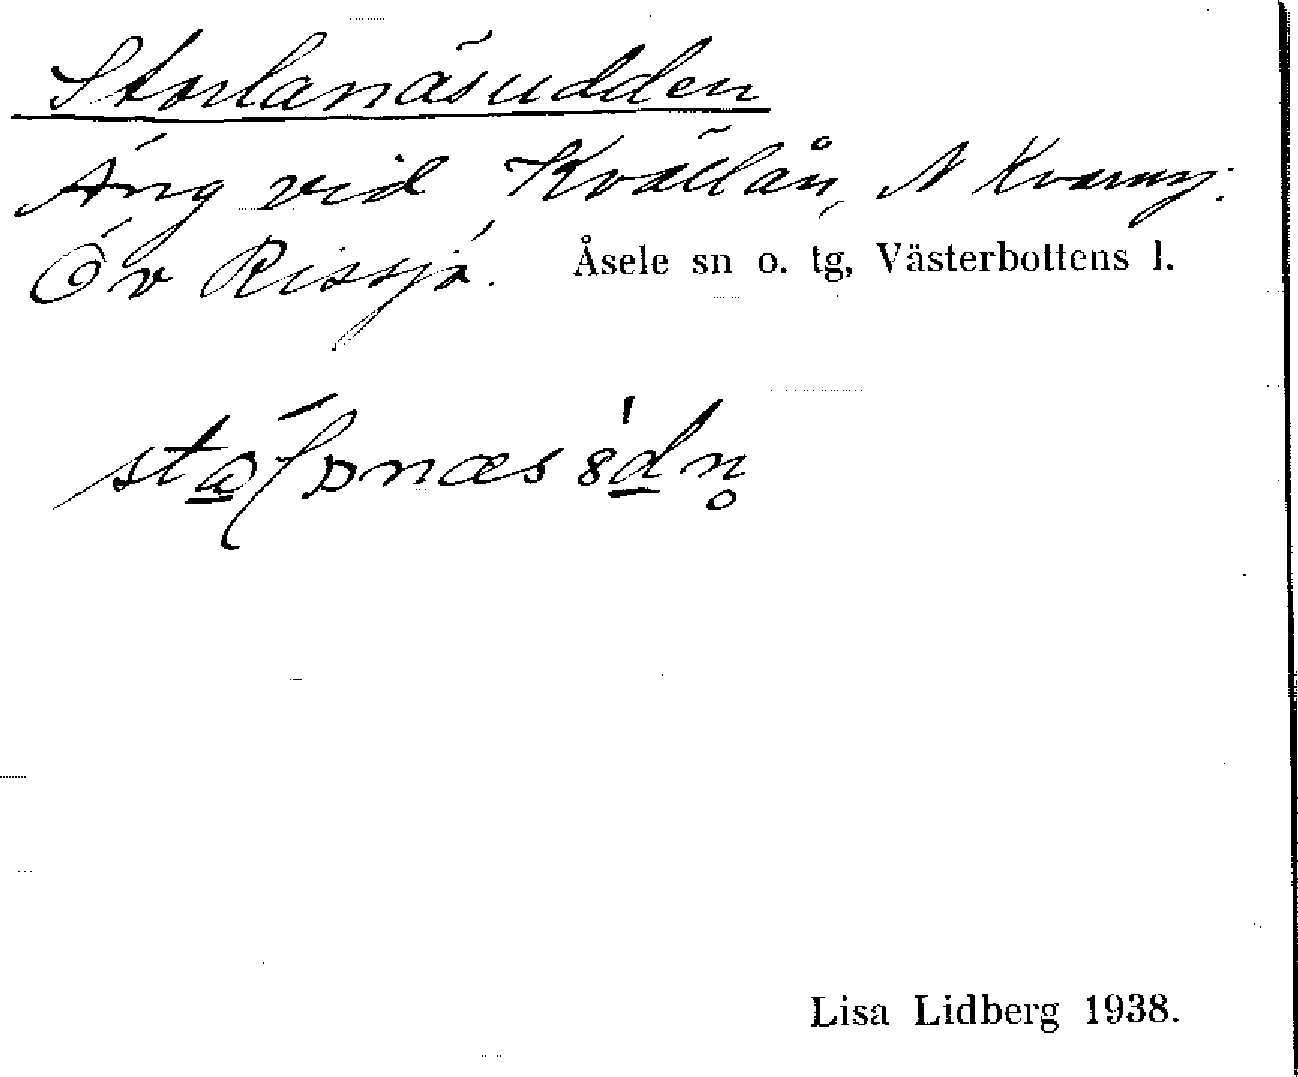 Storlanäsudden
Äng vid Kvällån, N Kvarnsj.
Öv Rissjö. Åsele sn o. tg, Västerbottens l.
Lisa Lidberg 1938.